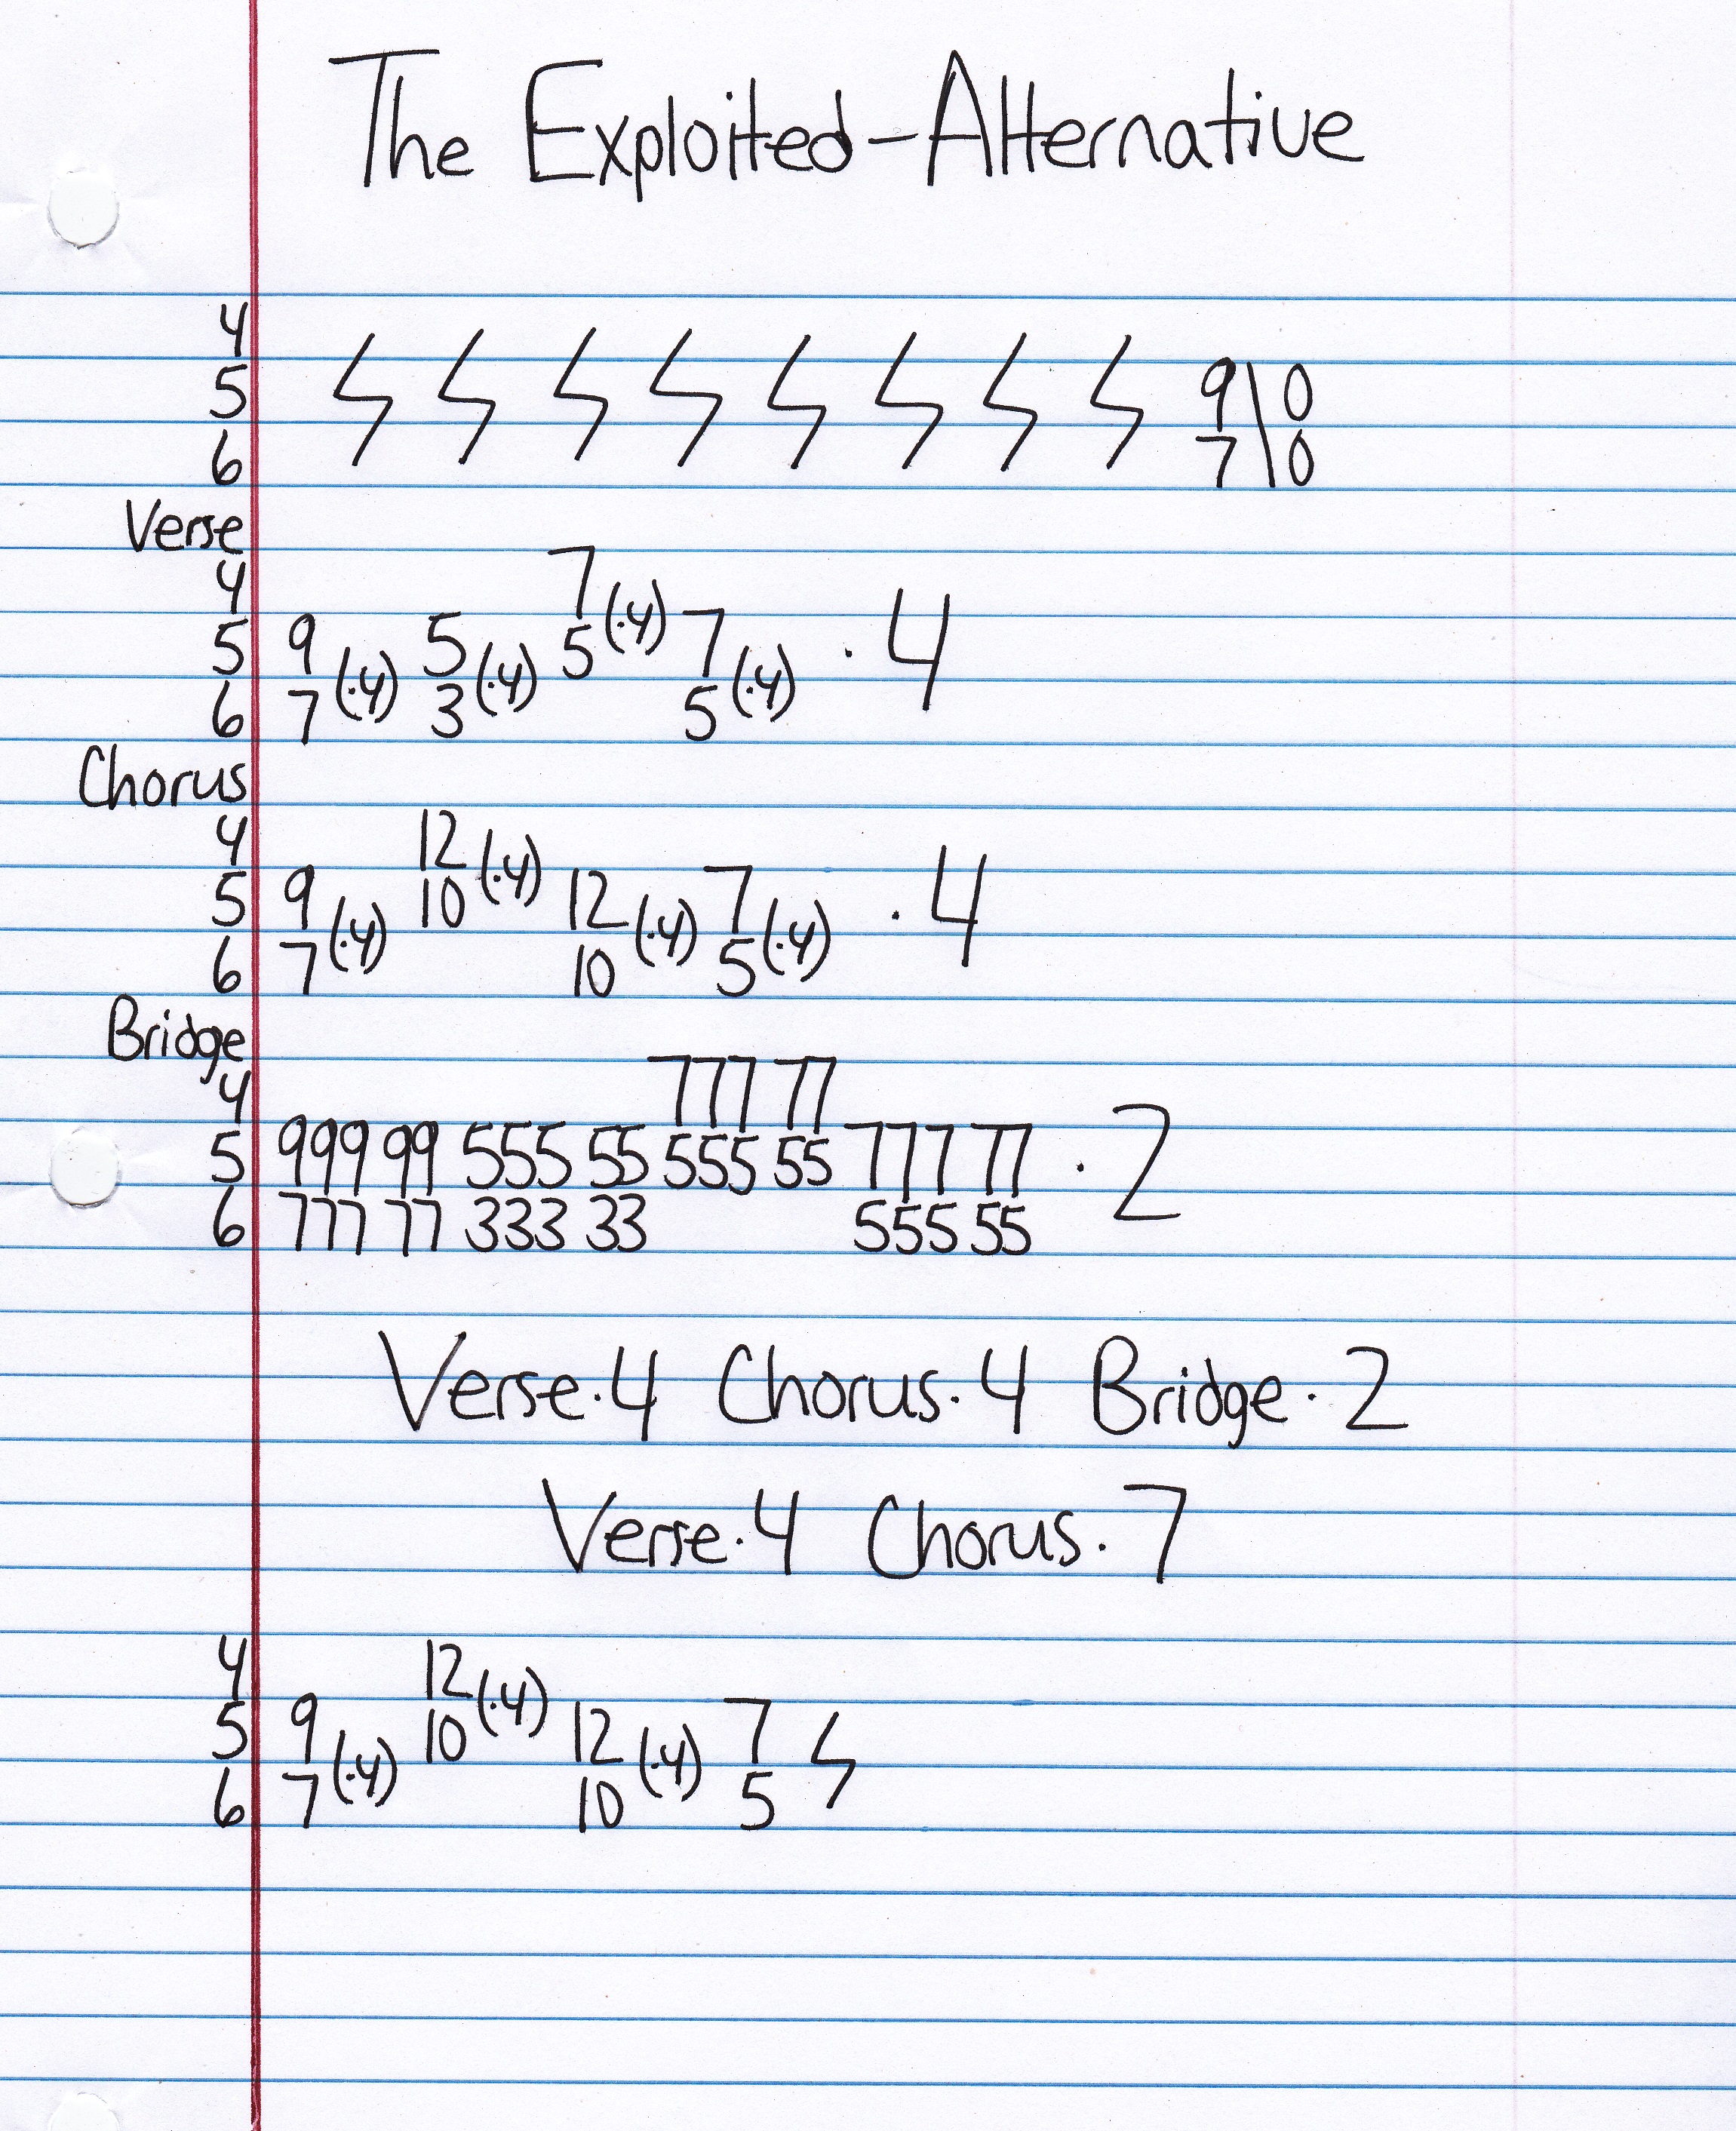 The Exploited-Alternative
4
5 9\0
6 7\0
Verse
4 7
5 9 5 5(·4) 7 ·4
6 7(·4) 3(·4) 5(·4)
Chorus
4 12
5 9 10(·4) 12 7 ·4
6 7(·4) 10(·4) 5(·4)
Bridge
4 777 77
5 999 99 555 55 555 55 777 77 ·2
6 777 77 333 33 555 55
Verse·4 Chorus·4 Bridge·2
Verse·4 Chorus·7
4 12
5 9 10(·4) 12 7
6 7(·4) 10(·4) 5